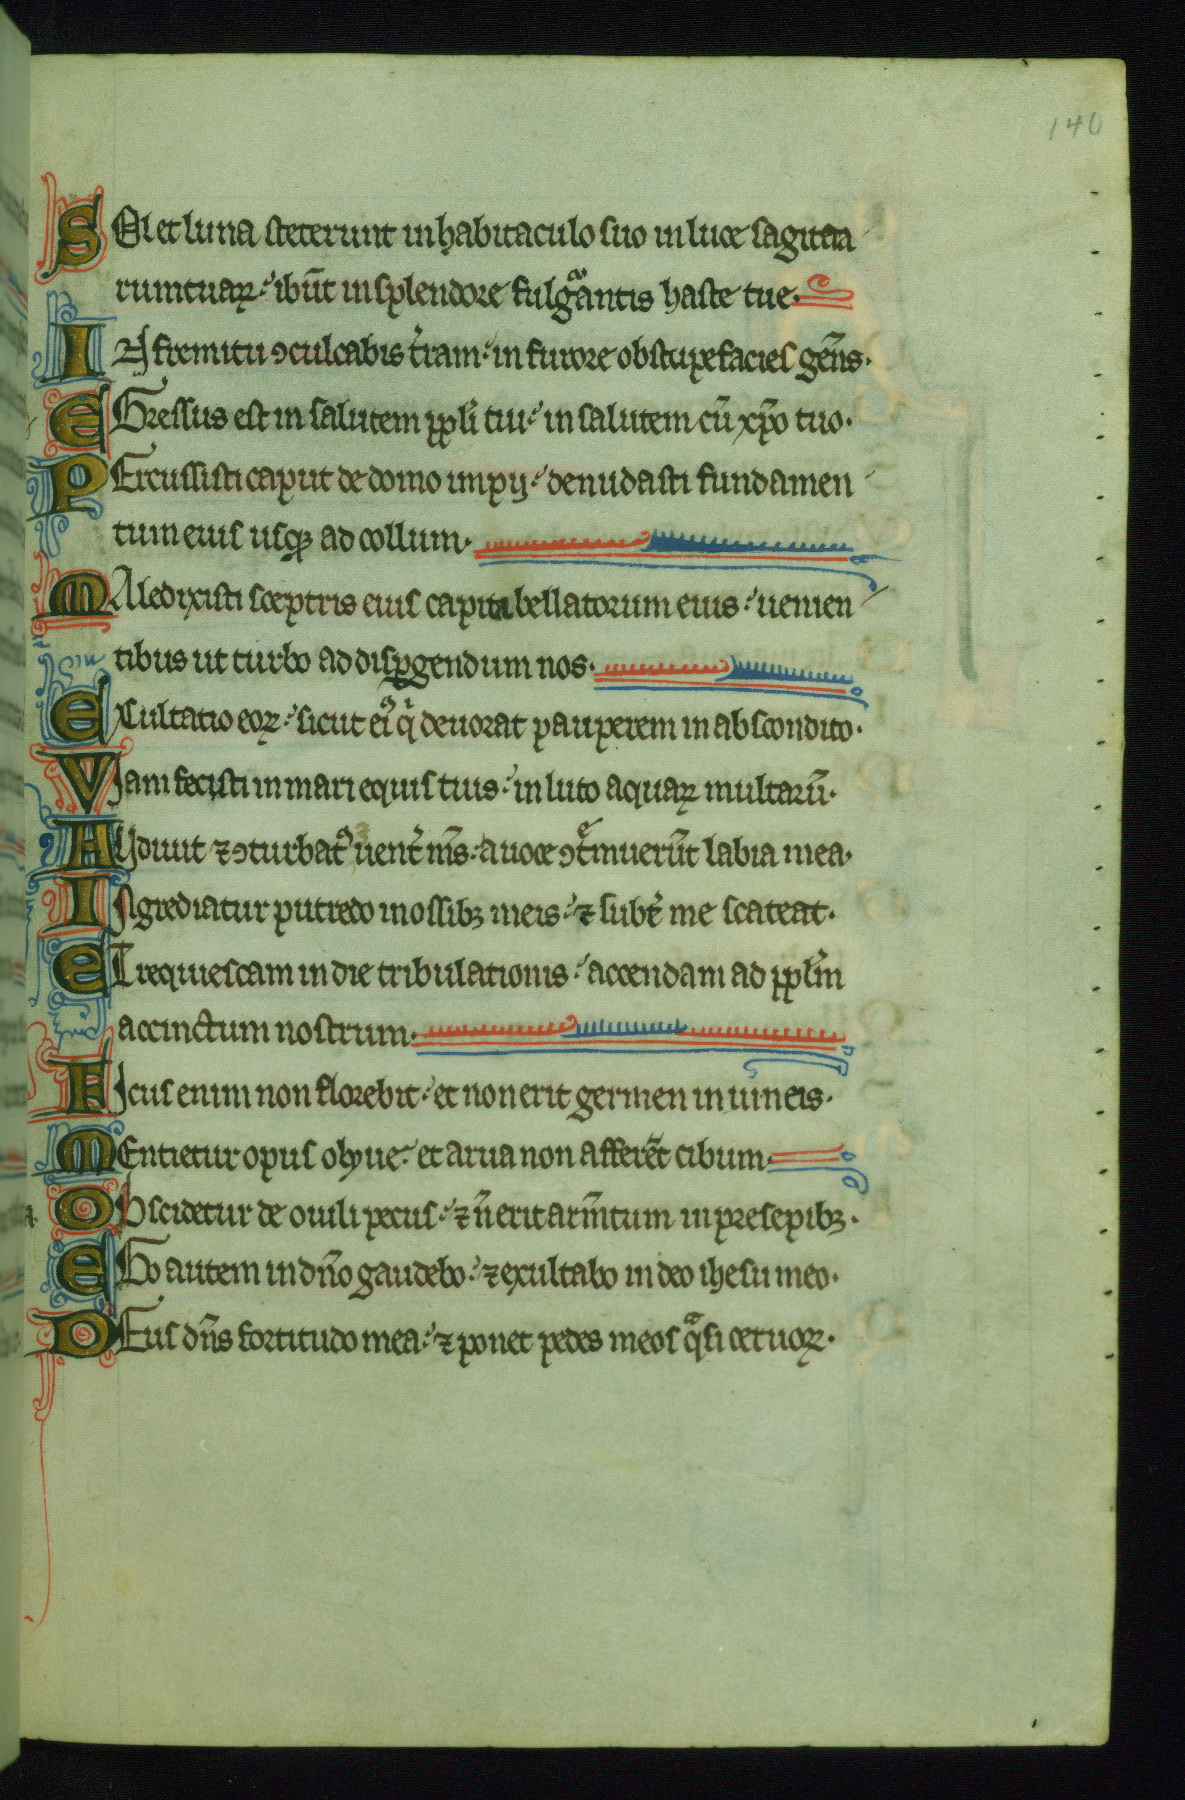 140
SOl et luna steterunt in habitaculo suo in luce sagitta
rum tuaꝝ: ibūt in splendore fulgᵃantis haste tue.
IN fremitu ꝯculcabis t̾ram: in furore obstupefacies gēns.
EGressus est in salutem ppl̄i tui: in salutem cū xp̄o tuo.
PErcussisti caput de domo impij: denudasti fundamen
tum eius usqꝫ ad collum.
MAledixisti sceptris eius capita bellatorum eius: uenien
tibus ut turbo ad disꝑgendum nos.
EXultatio eoꝝ: sicut eiꝰ qͥ deuorat pauperem in abscondito.
VIam fecisti in mari equis tuis: in luto aquaꝝ multarū.
AUdiui t ⁊ ꝯturbatꝰ uent̾ m̄s: a uoce ꝯtͤmuerūt labia mea.
INgrediatur putredo in ossibꝫ meis: ⁊ subt̾ me scateat.
ET requiescam in die tribulationis: accendam ad ppl̄m
accinctum nostrum.
FIcus enim non florebit: et non erit germen in uineis.
MEntietur opus olyue: et arua non afferēt cibum.
OBscidetur de ouili pecus: ⁊ n̄ erit arm̄tum in presepibꝫ.
EGo autem in dn̄o gaudebo: ⁊ exultabo in deo ihesu meo.
DEus dn̄s fortitudo mea: ⁊ ponet pedes meos qᵃsi ceruoꝝ.